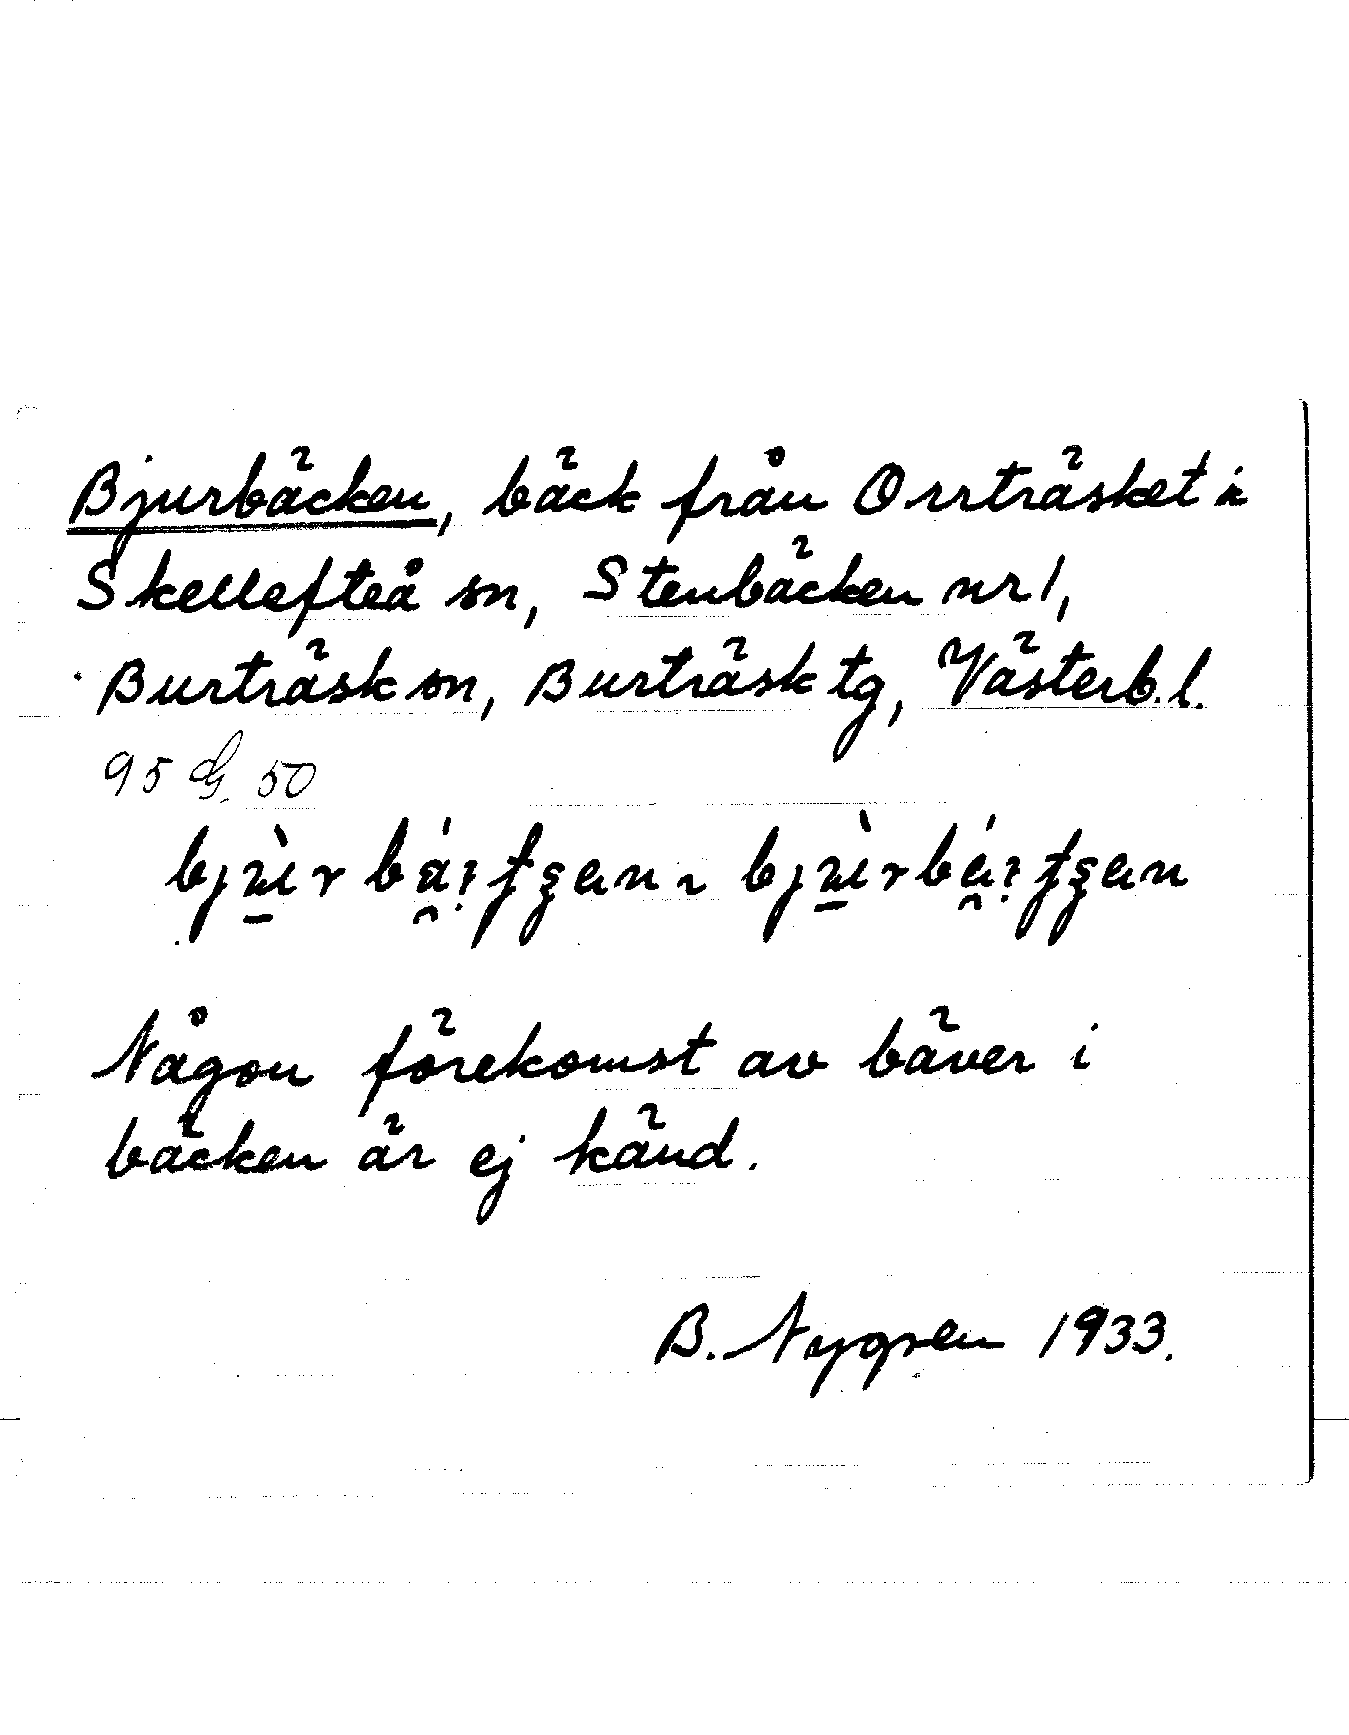 Bjurbäcken, bäck från Orrträsket i
Skellefteå sn, Stenbäcken nr 1,
Burträsk sn, Burträsk tg, Västerb. l.
95 50
Någon förekomst av bäver i
bäcken är ej känd.
B. Nygren 1933.